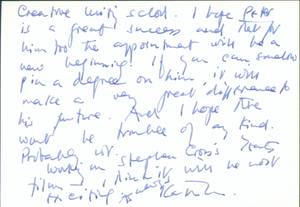 Creative writing school. I hope Peter
is a great success and that for
him too the appointment will be a
new beginning! If you can somehow
pin a degree on him, it will
make a very great difference to
his future. And I hope there
wont be trouble of any kind.
Probably
working on Stephen Cross's
film, I think it will be most
exciting